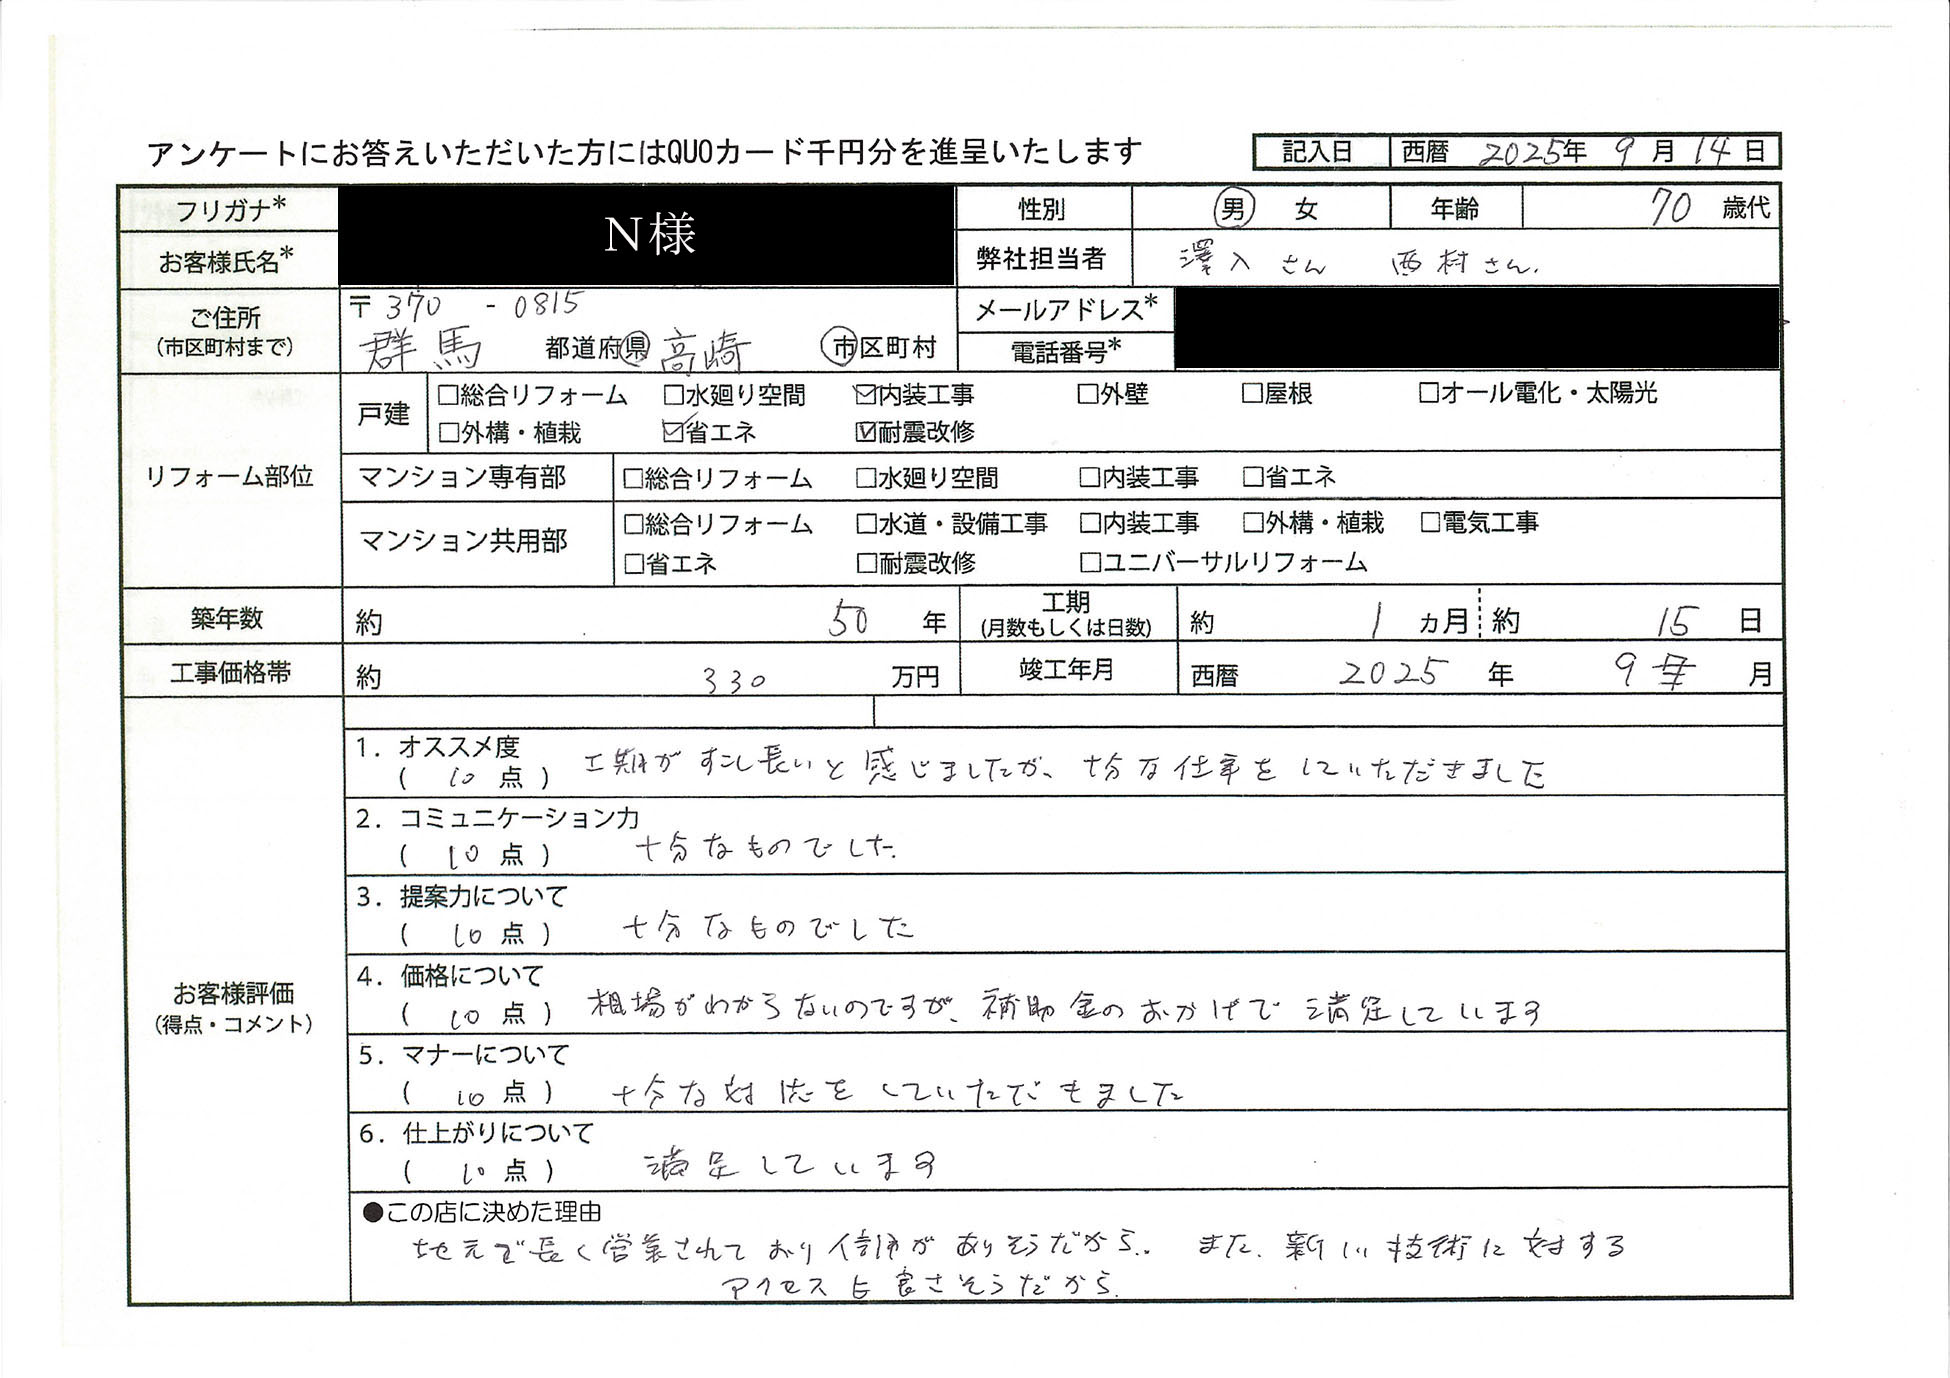 アンケートにお答えいただいた方にはQUOカード千円分を進呈いたします
記入日 西暦 2025年 9月 14日
フリガナ* N様 性別 男 女 年齢 70 歳代
お客様氏名* 弊社担当者 澤入さん 西村さん.
ご住所 (市区町村まで) 〒370-0815 メールアドレス*
群馬 都道府県 高崎 市区町村 電話番号*
リフォーム部位
戸建 □総合リフォーム □水廻り空間 ☑内装工事 □外壁 □屋根 □オール電化・太陽光
□外構・植栽 ☑省エネ ☑耐震改修
マンション専有部 □総合リフォーム □水廻り空間 □内装工事 □省エネ
マンション共用部 □総合リフォーム □水道・設備工事 □内装工事 □外構・植栽 □電気工事
□省エネ □耐震改修 □ユニバーサルリフォーム
築年数 約 50 年 工期 (月数もしくは日数) 約 1 ヵ月 約 15 日
工事価格帯 約 330 万円 竣工年月 西暦 2025 年 9 月
お客様評価 (得点・コメント)
1. オススメ度
( 10 点 ) 工期がすこし長いと感じましたが、十分な仕事をしていただきました
2. コミュニケーション力
( 10 点 ) 十分なものでした.
3. 提案力について
( 10 点 ) 十分なものでした
4. 価格について
( 10 点 ) 相場がわからないのですが、補助金のおかげで満足しています
5. マナーについて
( 10 点 ) 十分な対応をしていただきました
6. 仕上がりについて
( 10 点 ) 満足しています
●この店に決めた理由
地元で長く営業されており信用がありそうだから. また、新しい技術に対する
アクセスも良さそうだから.